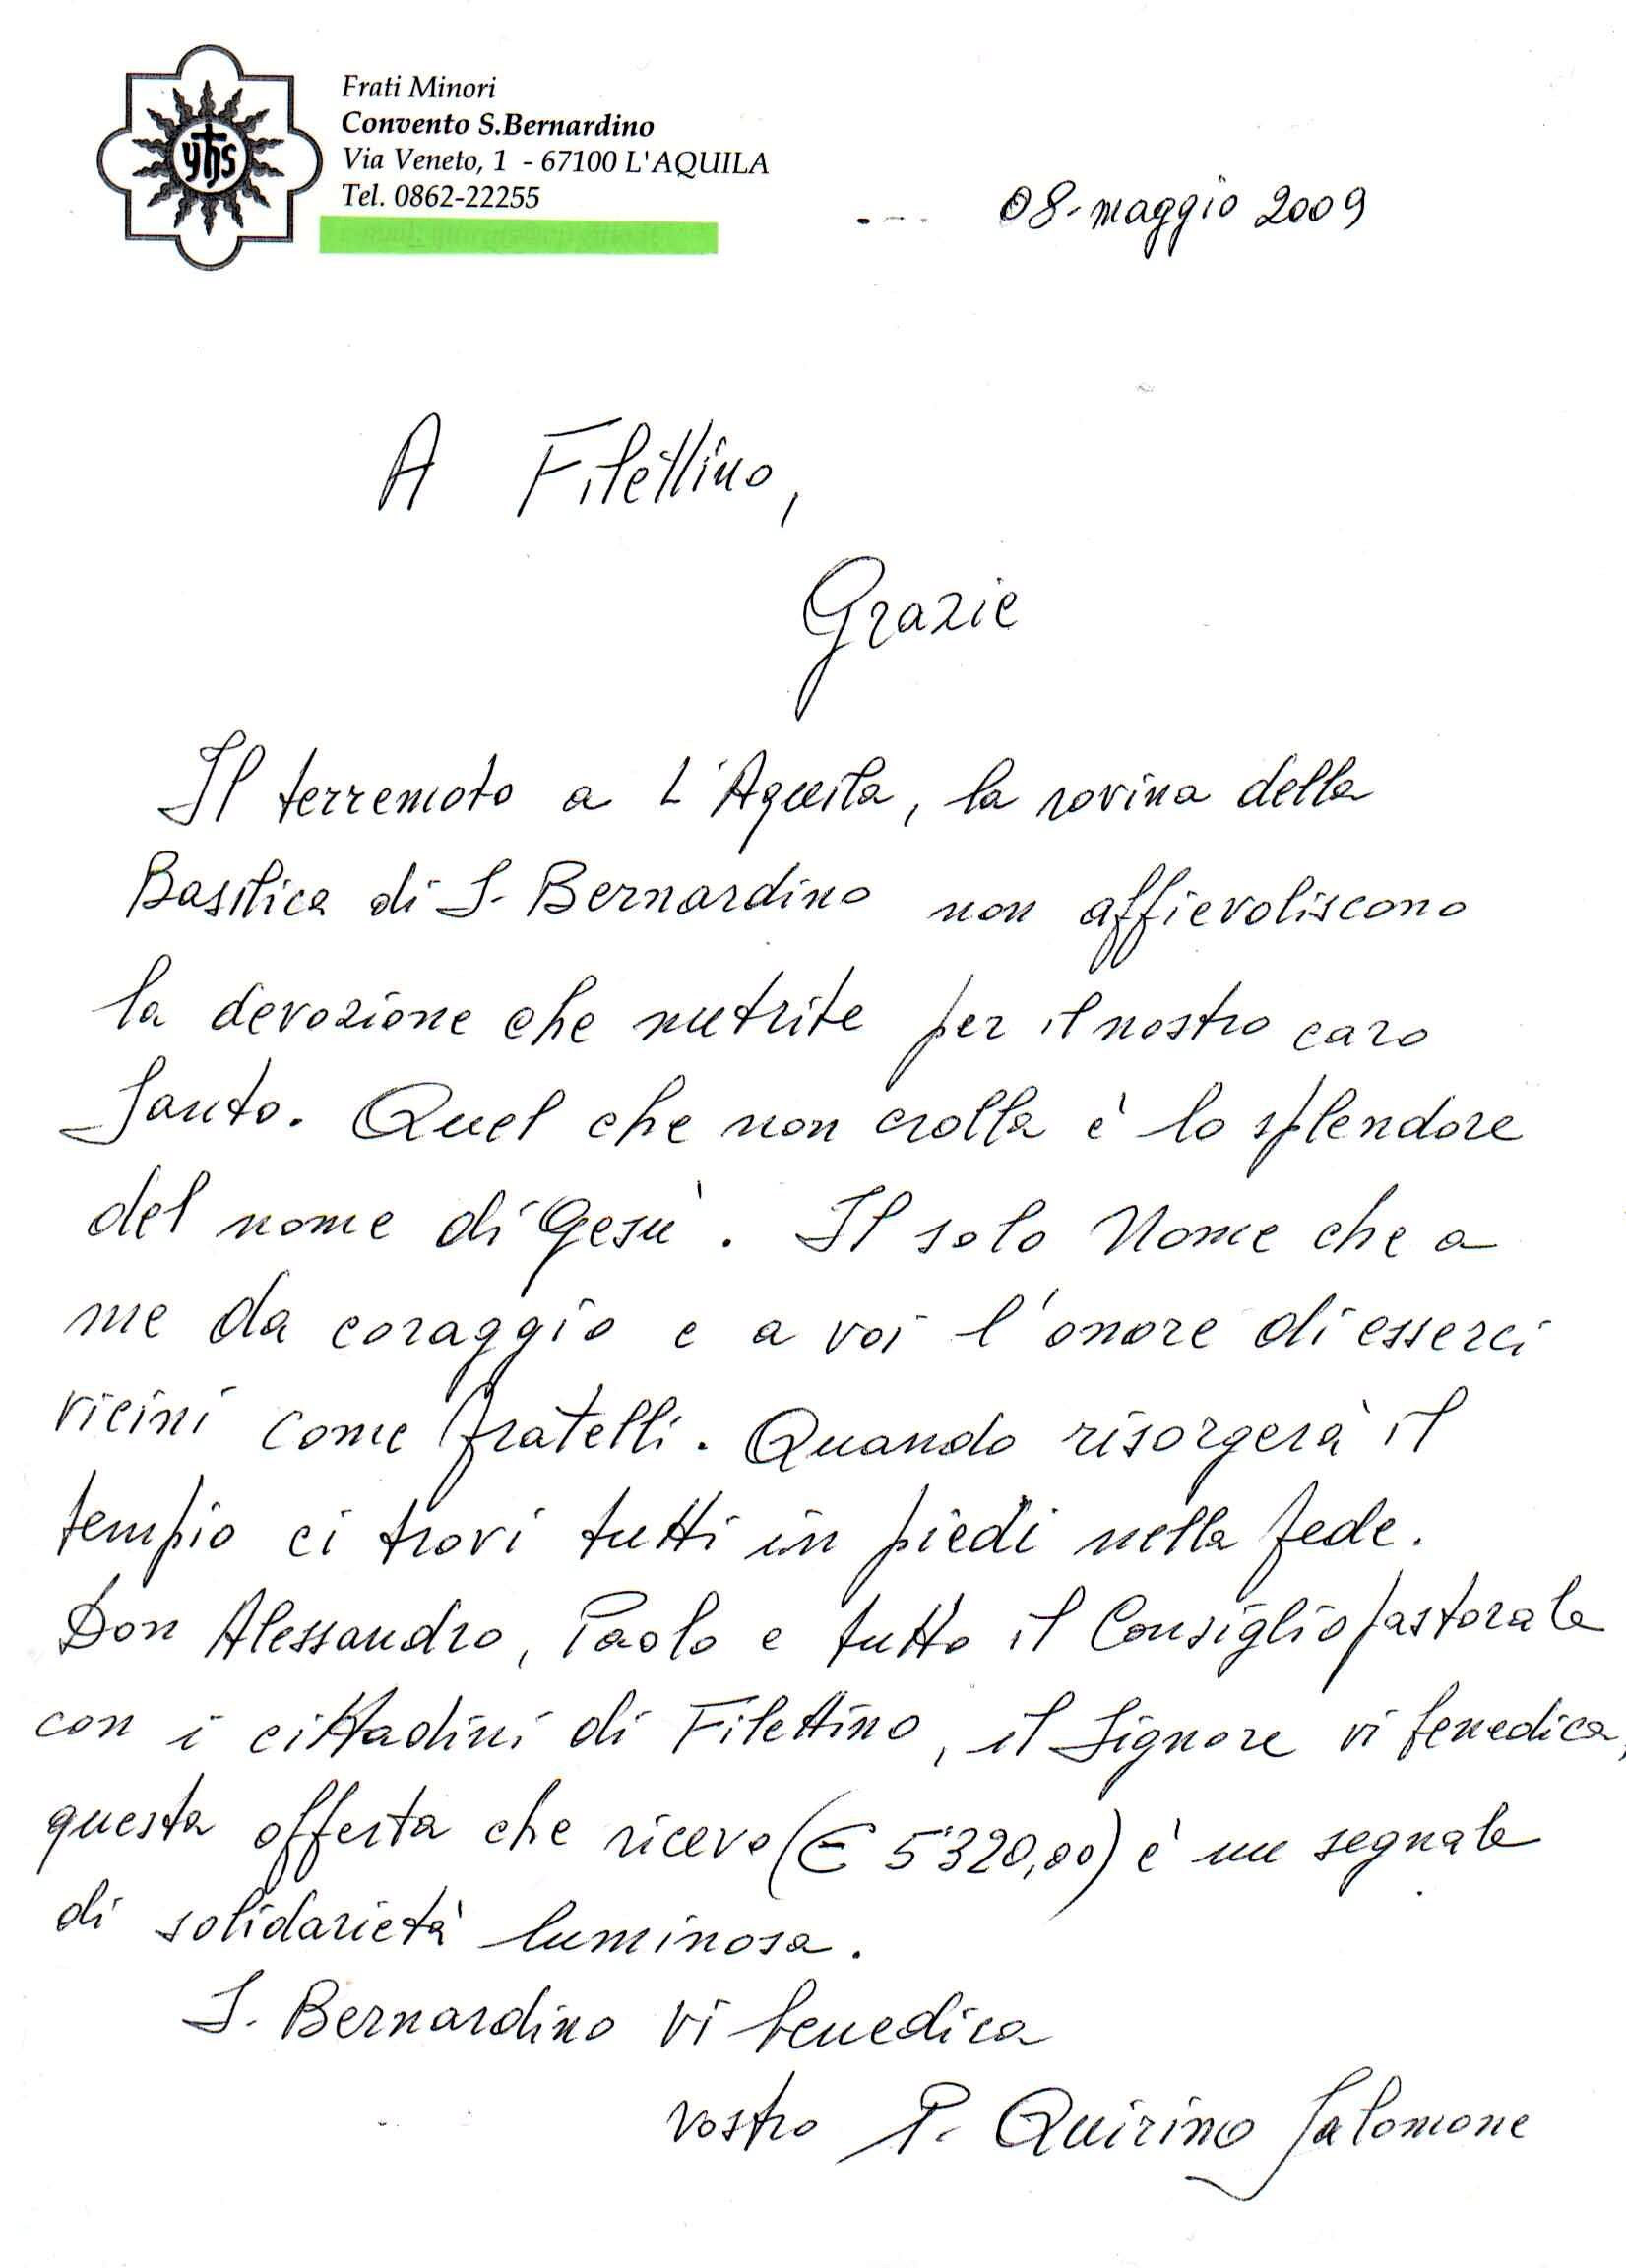 yhs
Frati Minori
Convento S.Bernardino
Via Veneto, 1 - 67100 L'AQUILA
Tel. 0862-22255
08-maggio 2009
A Filettino,
Grazie
Il terremoto a L'Aquila, la rovina della
Basilica di S. Bernardino non affievoliscono
la devozione che nutrite per il nostro caro
Santo. Quel che non crolla è lo splendore
del nome di Gesù. Il solo Nome che a
me da coraggio e a voi l'onore di esserci
vicini come fratelli. Quando risorgerà il
tempio ci trovi tutti in piedi nella fede.
Don Alessandro, Paolo e tutto il Consiglio pastorale
con i cittadini di Filettino, il Signore vi benedica,
questa offerta che ricevo (€ 5'320,00) è un segnale
di solidarietà luminosa.
S. Bernardino vi benedica
vostro P. Quirino Salomone